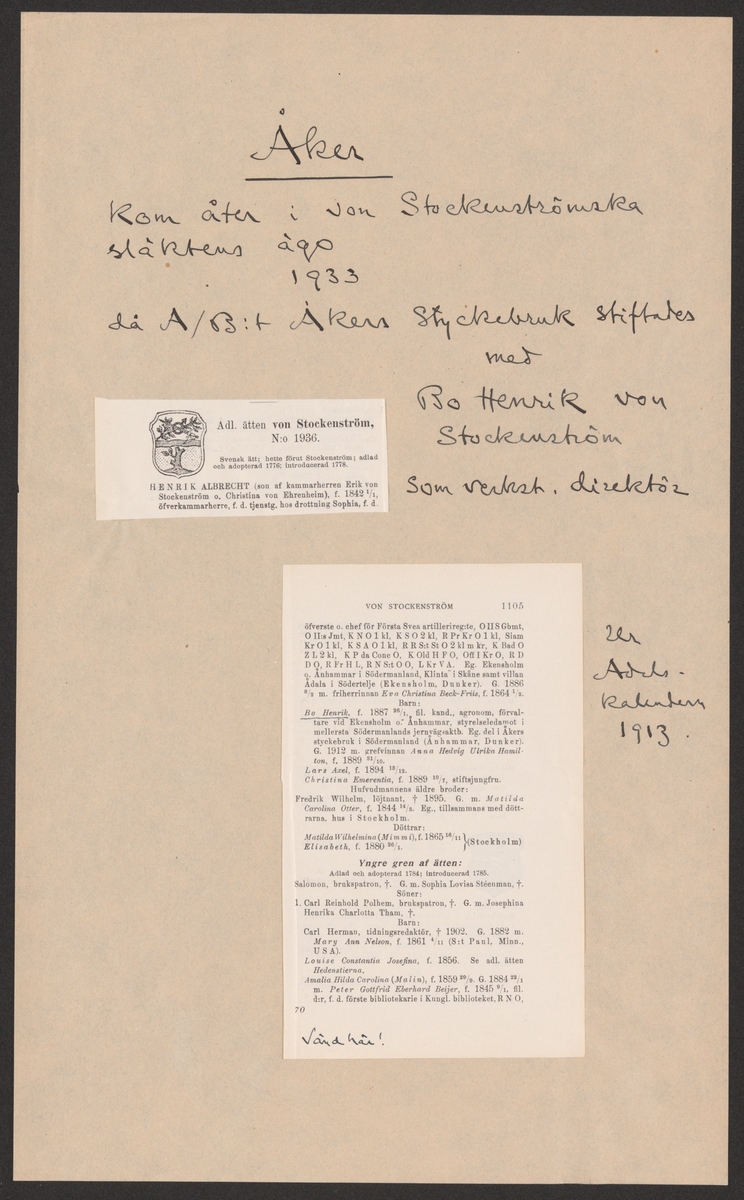 Åker
Kom åter i von Stockenströmska
släktens ägo
1933
då A/B:t Åkers Styckebruk stiftades
med
Bo Henrik von
Stockenström
som verkst. direktör
Adl. ätten von Stockenström,
N:o 1936.
Svensk ätt; hette förut Stockenström; adlad
och adopterad 1776; introducerad 1778.
HENRIK ALBRECHT (son af kammarherren Erik von
Stockenström o. Christina von Ehrenheim), f. 1842 1/1,
öfverkammarherre, f. d. tjenstg. hos drottning Sophia, f. d.
VON STOCKENSTRÖM 1105
öfverste o. chef för Första Svea artillerireg:te, O II S Gbmt,
O II:s Jmt, K N O 1 kl, K S O 2 kl, R Pr Kr O 1 kl, Siam
Kr O 1 kl, K S A O 1 kl, R R S:t St O 2 kl m kr, K Bad O
Z L 2 kl, K P da Conc O, K Old H F O, Off I Kr O, R D
D O, R Fr H L, R N S:t O O, L Kr V A. Eg. Ekensholm
o. Ånhammar i Södermanland, Klinta i Skåne samt villan
Ådala i Södertelje (Ekensholm, Dunker). G. 1886
m. friherrinnan Eva Christina Beck-Friis, f. 1864
Barn:
Bo Henrik, f. 1887 26/1, fil. kand., agronom, förval-
tare vid Ekensholm o. Ånhammar, styrelseledamot i
mellersta Södermanlands jernvägsaktb. Eg. del i Åkers
styckebruk i Södermanland (Ånhammar, Dunker).
G. 1912 m. grefvinnan Anna Hedvig Ulrika Hamil-
ton, f. 1889 31/10.
Lars Axel, f. 1894 13/12.
Christina Emerentia, f. 1889 10/7, stiftsjungfru.
Hufvudmannens äldre broder:
Fredrik Wilhelm, löjtnant, † 1895. G. m. Matilda
Carolina Otter, f. 1844 Eg., tillsammans med dött-
rarna, hus i Stockholm.
Döttrar:
Matilda Wilhelmina (Mimmi), f. 1865 16/11
Elisabeth, f. 1880 26/1. } (Stockholm)
Yngre gren af ätten:
Adlad och adopterad 1784; introducerad 1785.
Salomon, brukspatron, †. G. m. Sophia Lovisa Stéenman, †.
Söner:
1. Carl Reinhold Polhem, brukspatron, †. G. m. Josephina
Henrika Charlotta Tham, †.
Barn:
Carl Herman, tidningsredaktör, † 1902. G. 1882 m.
Mary Ann Nelson, f. 1861 4/11 (S:t Paul, Minn.,
U S A).
Louise Constantia Josefina, f. 1856. Se adl. ätten
Hedenstierna.
Amalia Hilda Carolina (Malin), f. 1859 G. 1884 22/1
m. Peter Gottfrid Eberhard Beijer, f. 1845 fil.
d:r, f. d. förste bibliotekarie i Kungl. biblioteket, R N O,
70
Vänd här!
Ur
Adels-
Kalendern
1913.